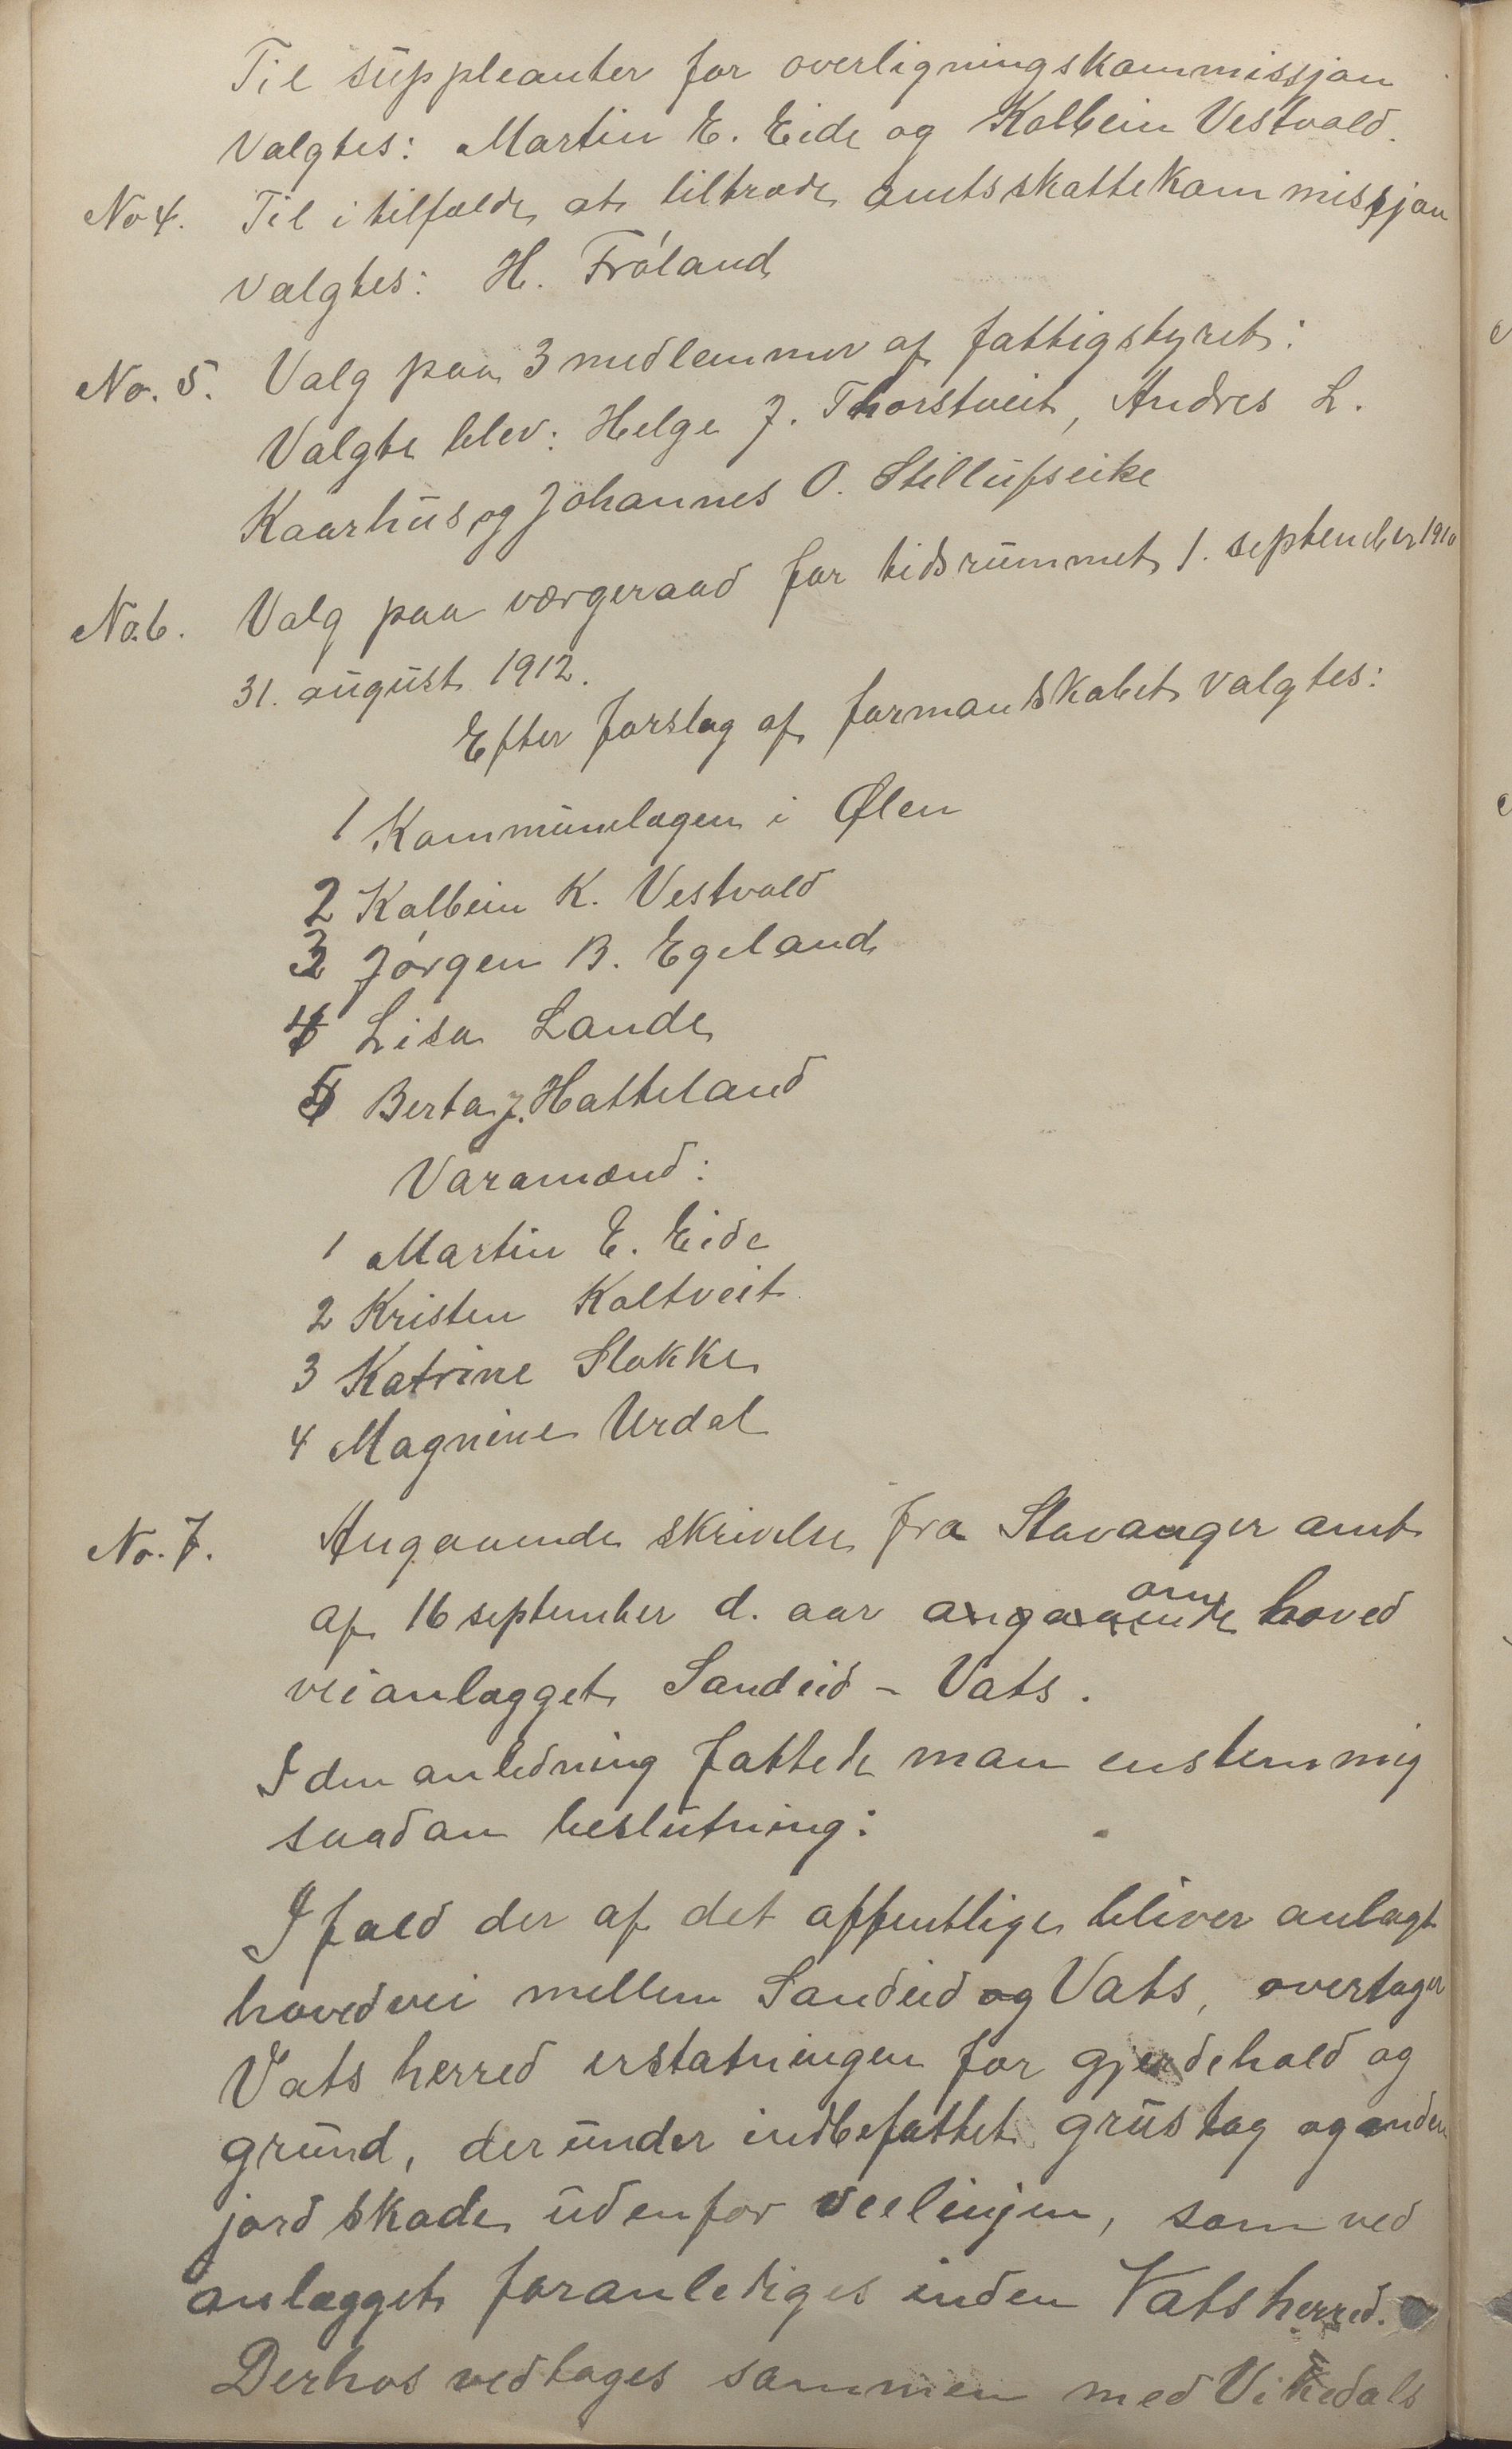 Til suppleanter for overligningskommissjon
valgtes: Martin E. Eide og Kolbein Vestvold.
No 4. Til i tilfælde at tiltræde amtsskattekommissjon
valgtes: H. Frøland
No. 5. Valg paa 3 medlemmer af fattigstyret:
Valgte blev: Helge J. Thorstveit, Andres L.
Kaarhus og Johannes O. Stillufseike
No. 6. Valg paa værgeraad for tidsrummet 1. september 1910
31. august 1912.
Efter forslag af formandskabet valgtes:
1 Kommunelægen i Ølen
2 Kolbein K. Vestvold
3 Jørgen B. Egeland
4 Lisa Lande
5 Berta J. Hatteland
Varamænd:
1 Martin E. Eide
2 Kristen Koltveit
3 Katrine Stokke
4 Magnine Urdal
No. 7. Angaaende skrivelse fra Stavanger amt
af 16 september d. aar angaaende om hoved
veianlægget Sandeid - Vats.
I den anledning fattede man enstemmig
saadan beslutning:
I fald der af det offentlige bliver anlagt
hovedvei mellem Sandeid og Vats, overtager
Vats herred erstatningen for gjerdehold og
grund, derunder indbefattet grustag og anden
jordskade udenfor veilinjen, som ved
anlægget foranlediges inden Vats herred.
Derhos vedtages sammen med Vikedals